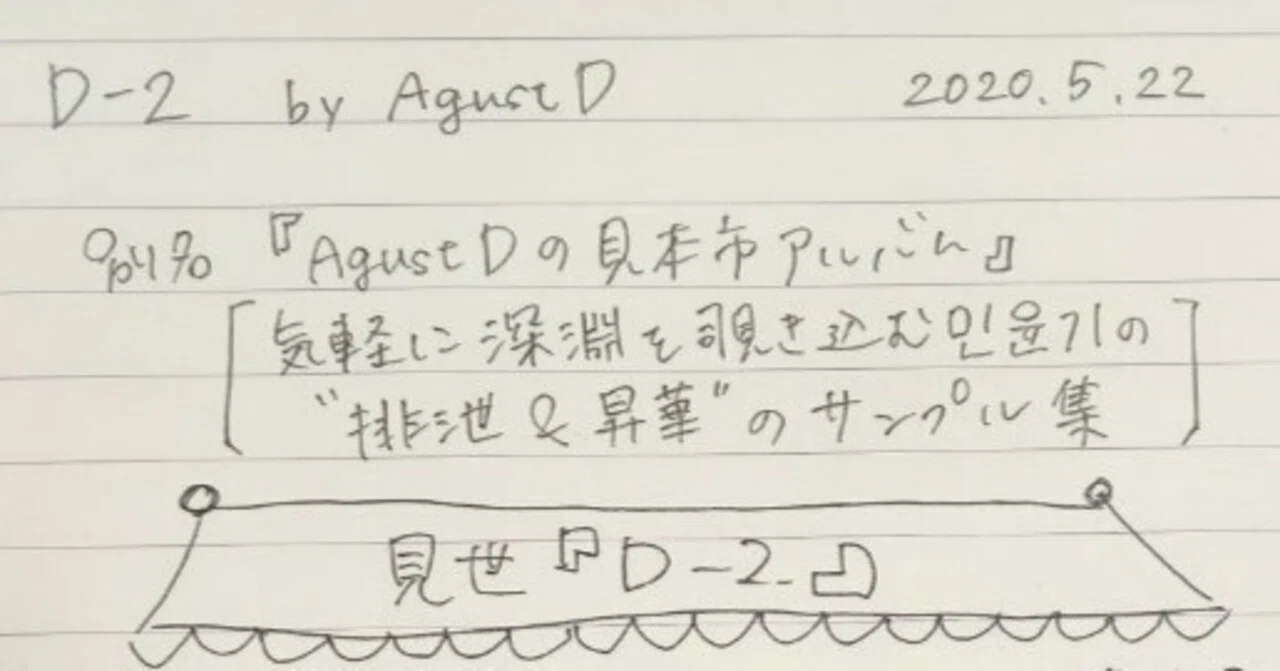 D-2 by Agust D 2020.5.22
『Agust Dの見本市アルバム』
[気軽に深淵を覗き込む민윤기の
"排泄&昇華"のサンプル集]
見世『D-2』